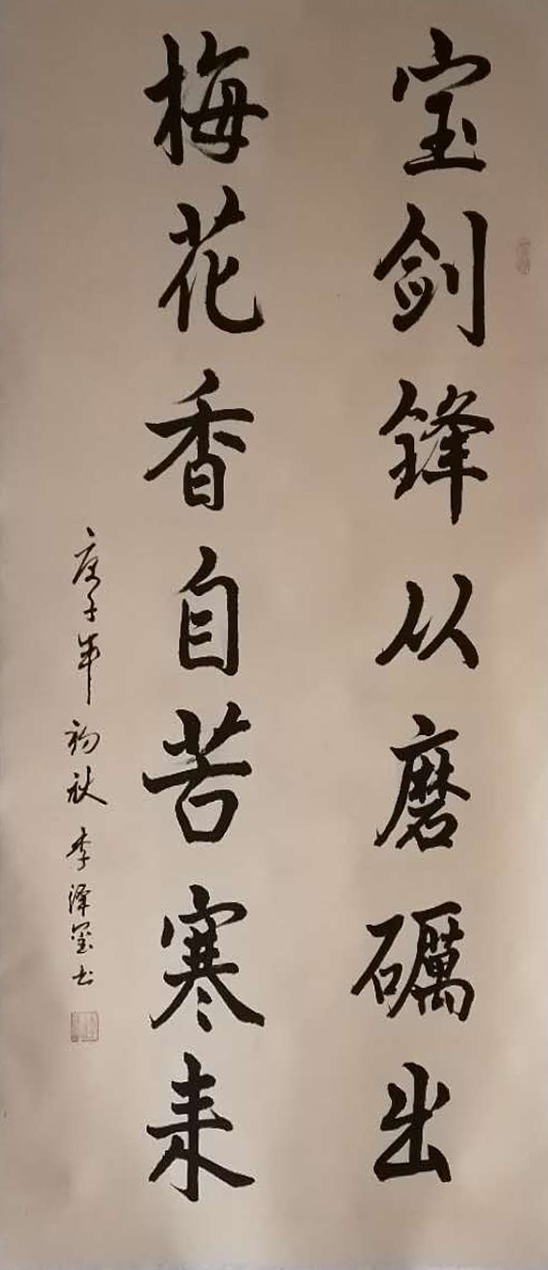 宝剑锋从磨礪出
梅花香自苦寒来
庚子年初秋 李泽玺书